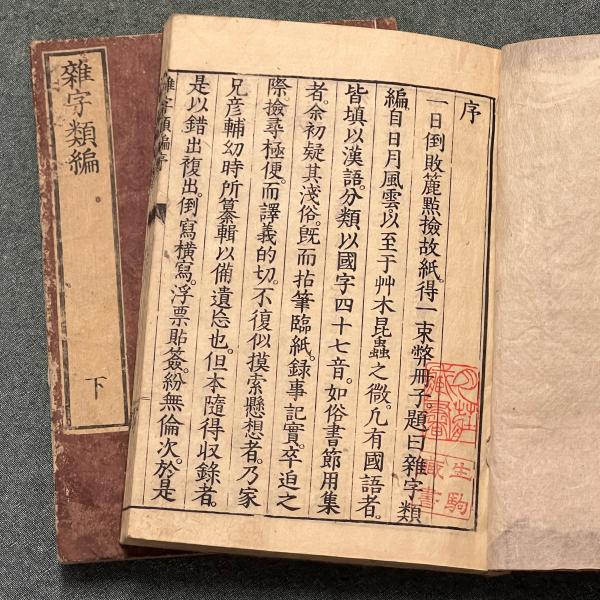 雜字類編
下
雜字類編序
序
一日倒敗簏㸃撿故紙。得一束弊冊子。題曰雜字類
編。自日月風雲。以至于艸木昆蟲之微。凢有國語者。
皆填以漢語。分類以國字四十七音。如俗書節用集
者。余初疑其淺俗。旣而拈筆臨紙。録事記實。卒迫之
際。撿尋極便。而譯義的切。不復似摸索懸想者。乃家
兄彦輔幼時所纂輯以備遺忘也。但本隨得収錄者。
是以錯出複出。倒寫橫寫。浮票貼簽。紛無倫次。於是
生駒
藏書